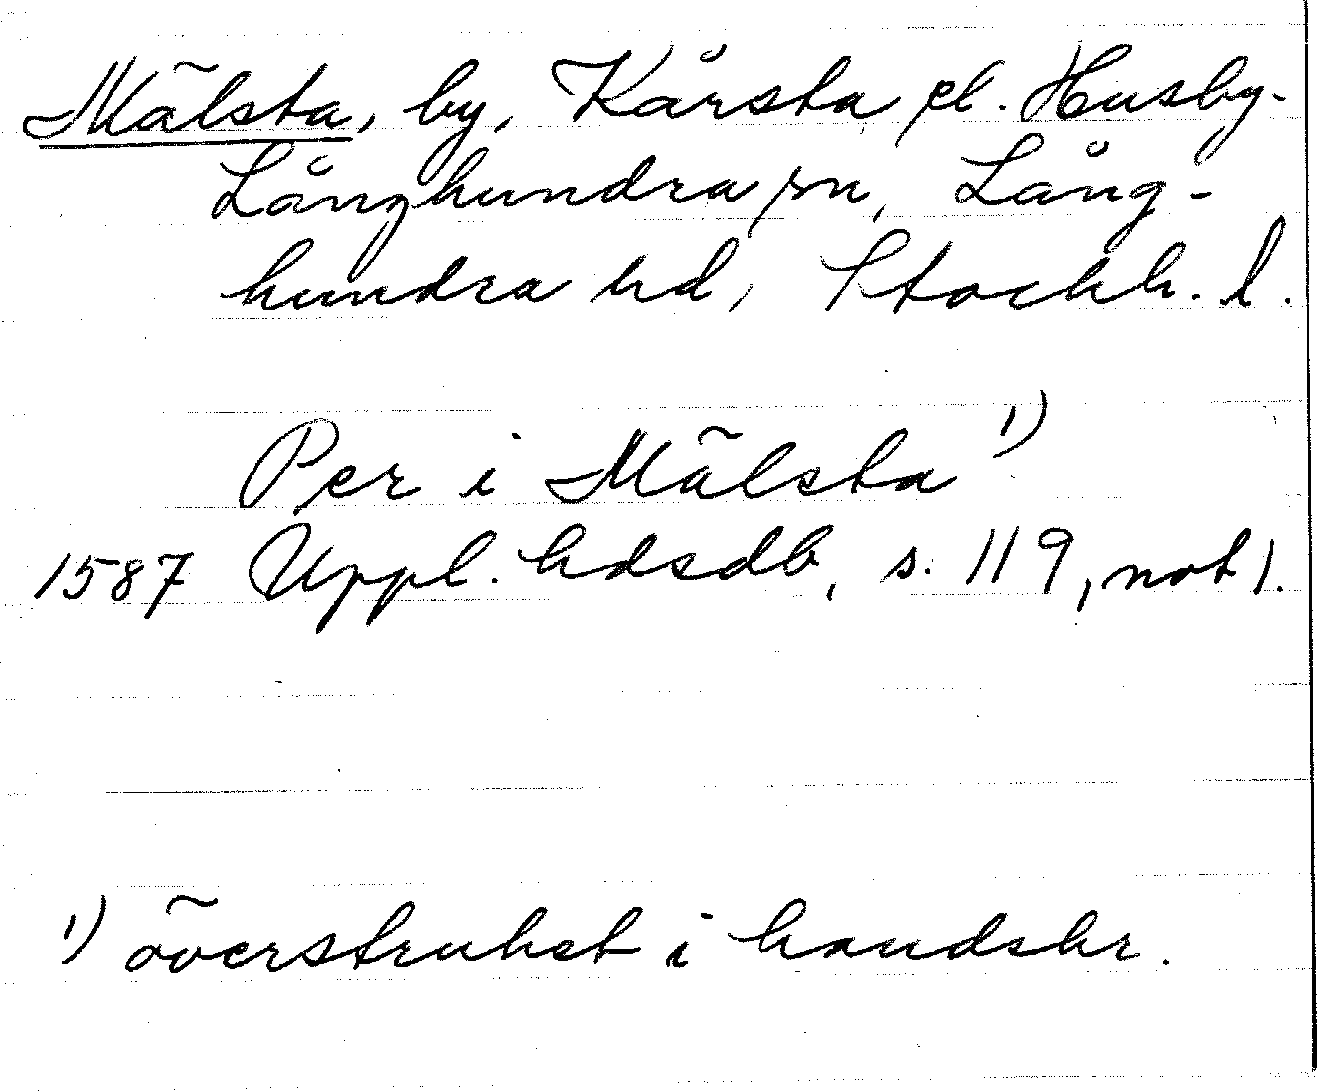 Mälsta, by, Kårsta el. Husby-
Långhundra sn, Lång-
hundra hd, Stockh. l.
Per i Mälsta 1)
1587 Uppl. hdsdb, s. 119, not 1.
1) överstruket i handskr.